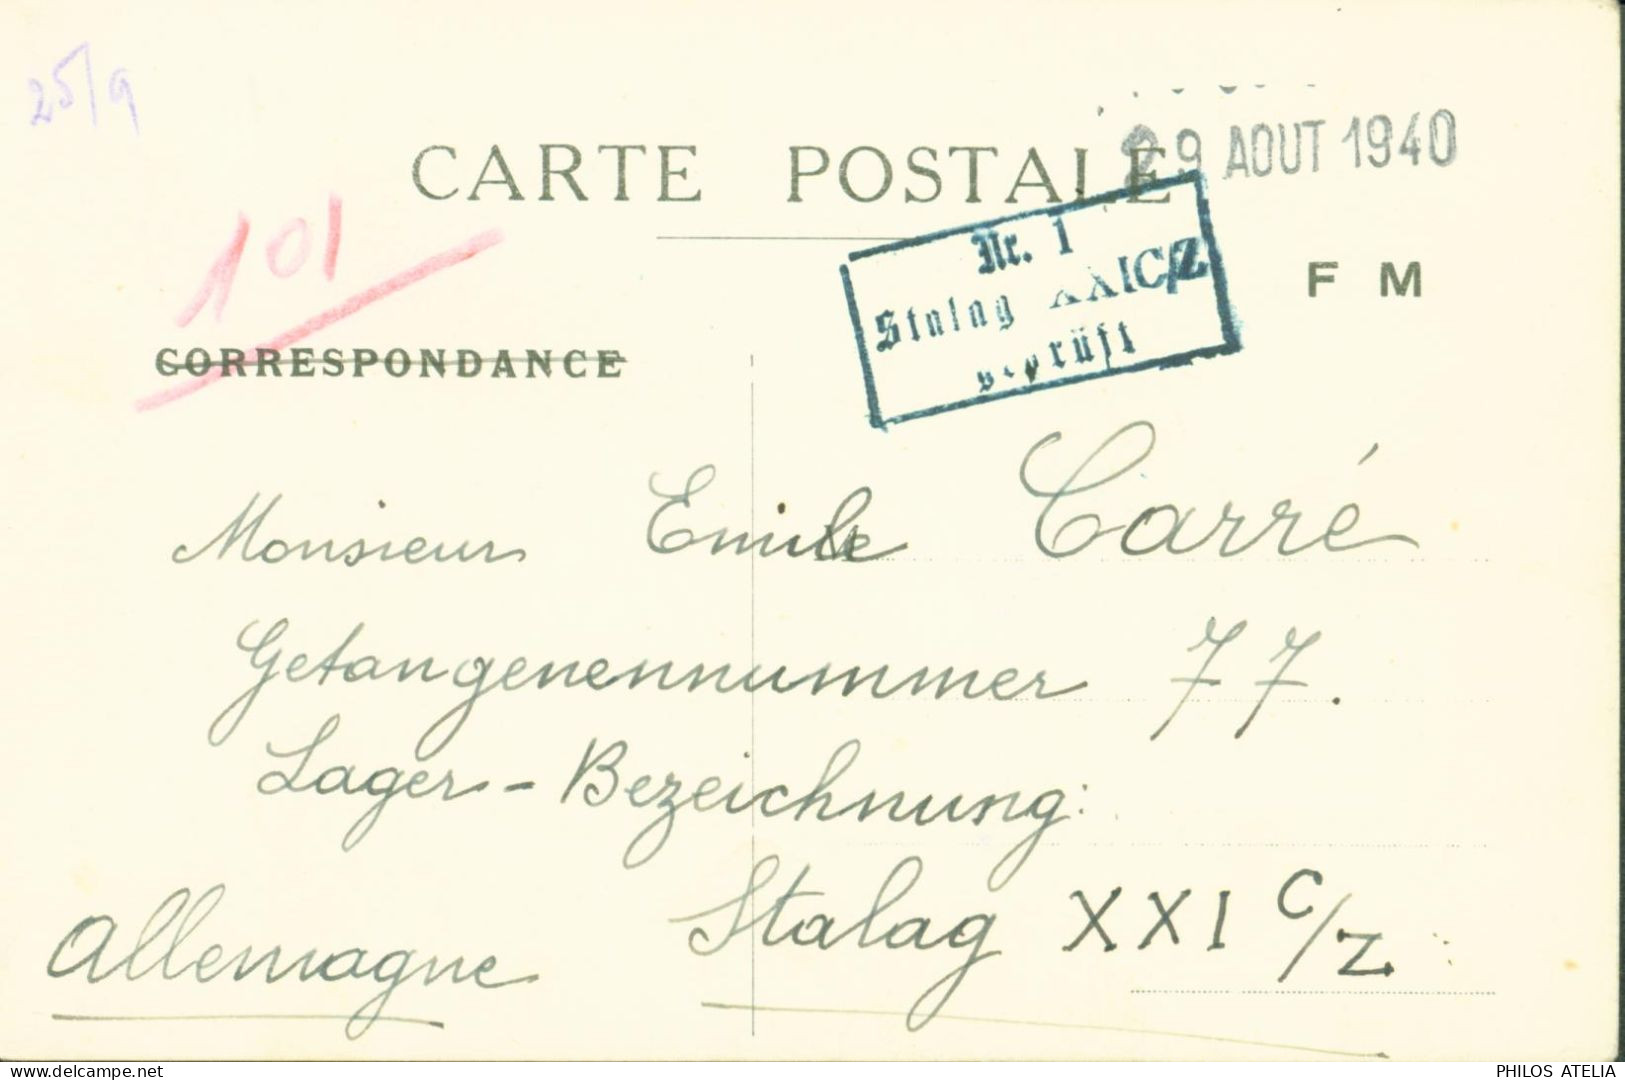 25/9
CARTE POSTALE
29 AOUT 1940
101
Nr. 1
Stalag XXIC/Z
geprüft
F M
CORRESPONDANCE
Monsieur Emile Carré
Getangenennummer 77.
Lager-Bezeichnung:
Stalag XXI C/Z
Allemagne
delcampe.net
PHILOS ATELIA